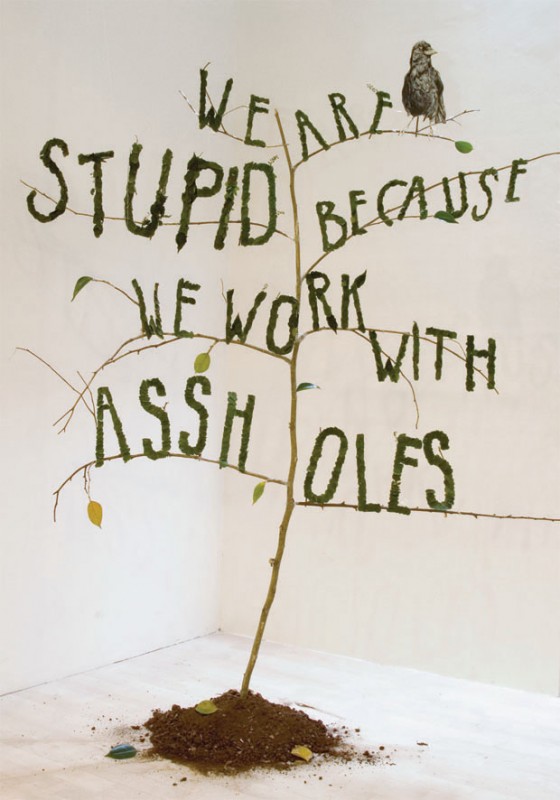 WE ARE
STUPID BECAUSE
WE WORK WITH
ASSHOLES